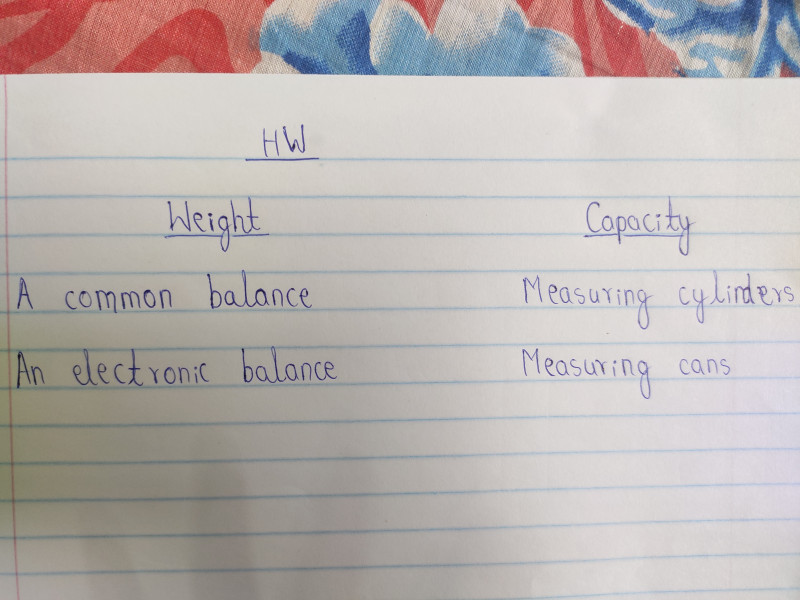 HW
Weight Capacity
A common balance Measuring cylinders
An electronic balance Measuring cans